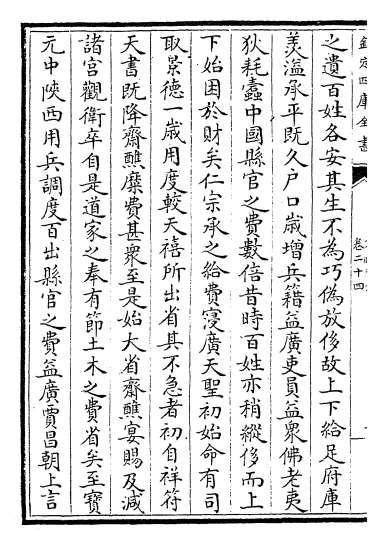 欽定四庫全書
卷二十四
之遺百姓各安其生不為巧偽放侈故上下給足府庫
羡溢承平既久户口嵗增兵籍益廣吏員益衆佛老夷
狄耗蠹中國縣官之費數倍昔時百姓亦稍縱侈而上
下始困於財矣仁宗承之給費寖廣天聖初始命有司
取景德一嵗用度較天禧所出省其不急者初自祥符
天書既降齋醮糜費甚衆至是始大省齋醮宴賜及減
諸宮觀衛卒自是道家之奉有節土木之費省矣至寶
元中陜西用兵調度百出縣官之費益廣賈昌朝上言